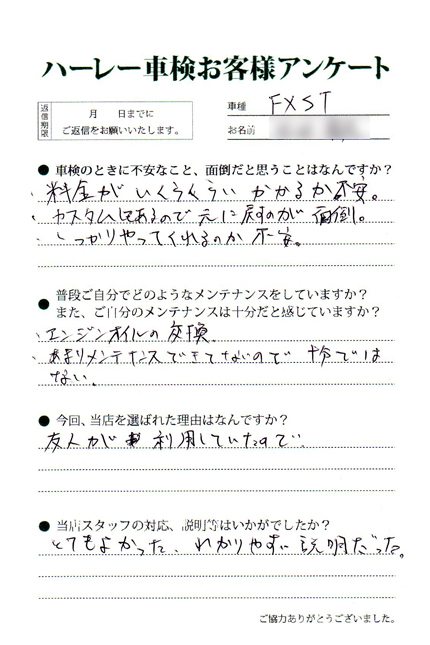 ハーレー車検お客様アンケート
返信期限
月　日までに
ご返信をお願いいたします。
車種 FXST
お名前
● 車検のときに不安なこと、面倒だと思うことはなんですか?
、料金がいくらくらいかかるか不安。
、カスタムしてあるので元に戻すのが面倒。
、しっかりやってくれるのか不安。
● 普段ご自分でどのようなメンテナンスをしていますか?
また、ご自分のメンテナンスは十分だと感じていますか?
、エンジンオイルの交換
、あまりメンテナンスできてないので十分では
ない。
● 今回、当店を選ばれた理由はなんですか?
友人が利用していたので
● 当店スタッフの対応、説明等はいかがでしたか?
とてもよかった、わかりやすい説明だった。
ご協力ありがとうございました。